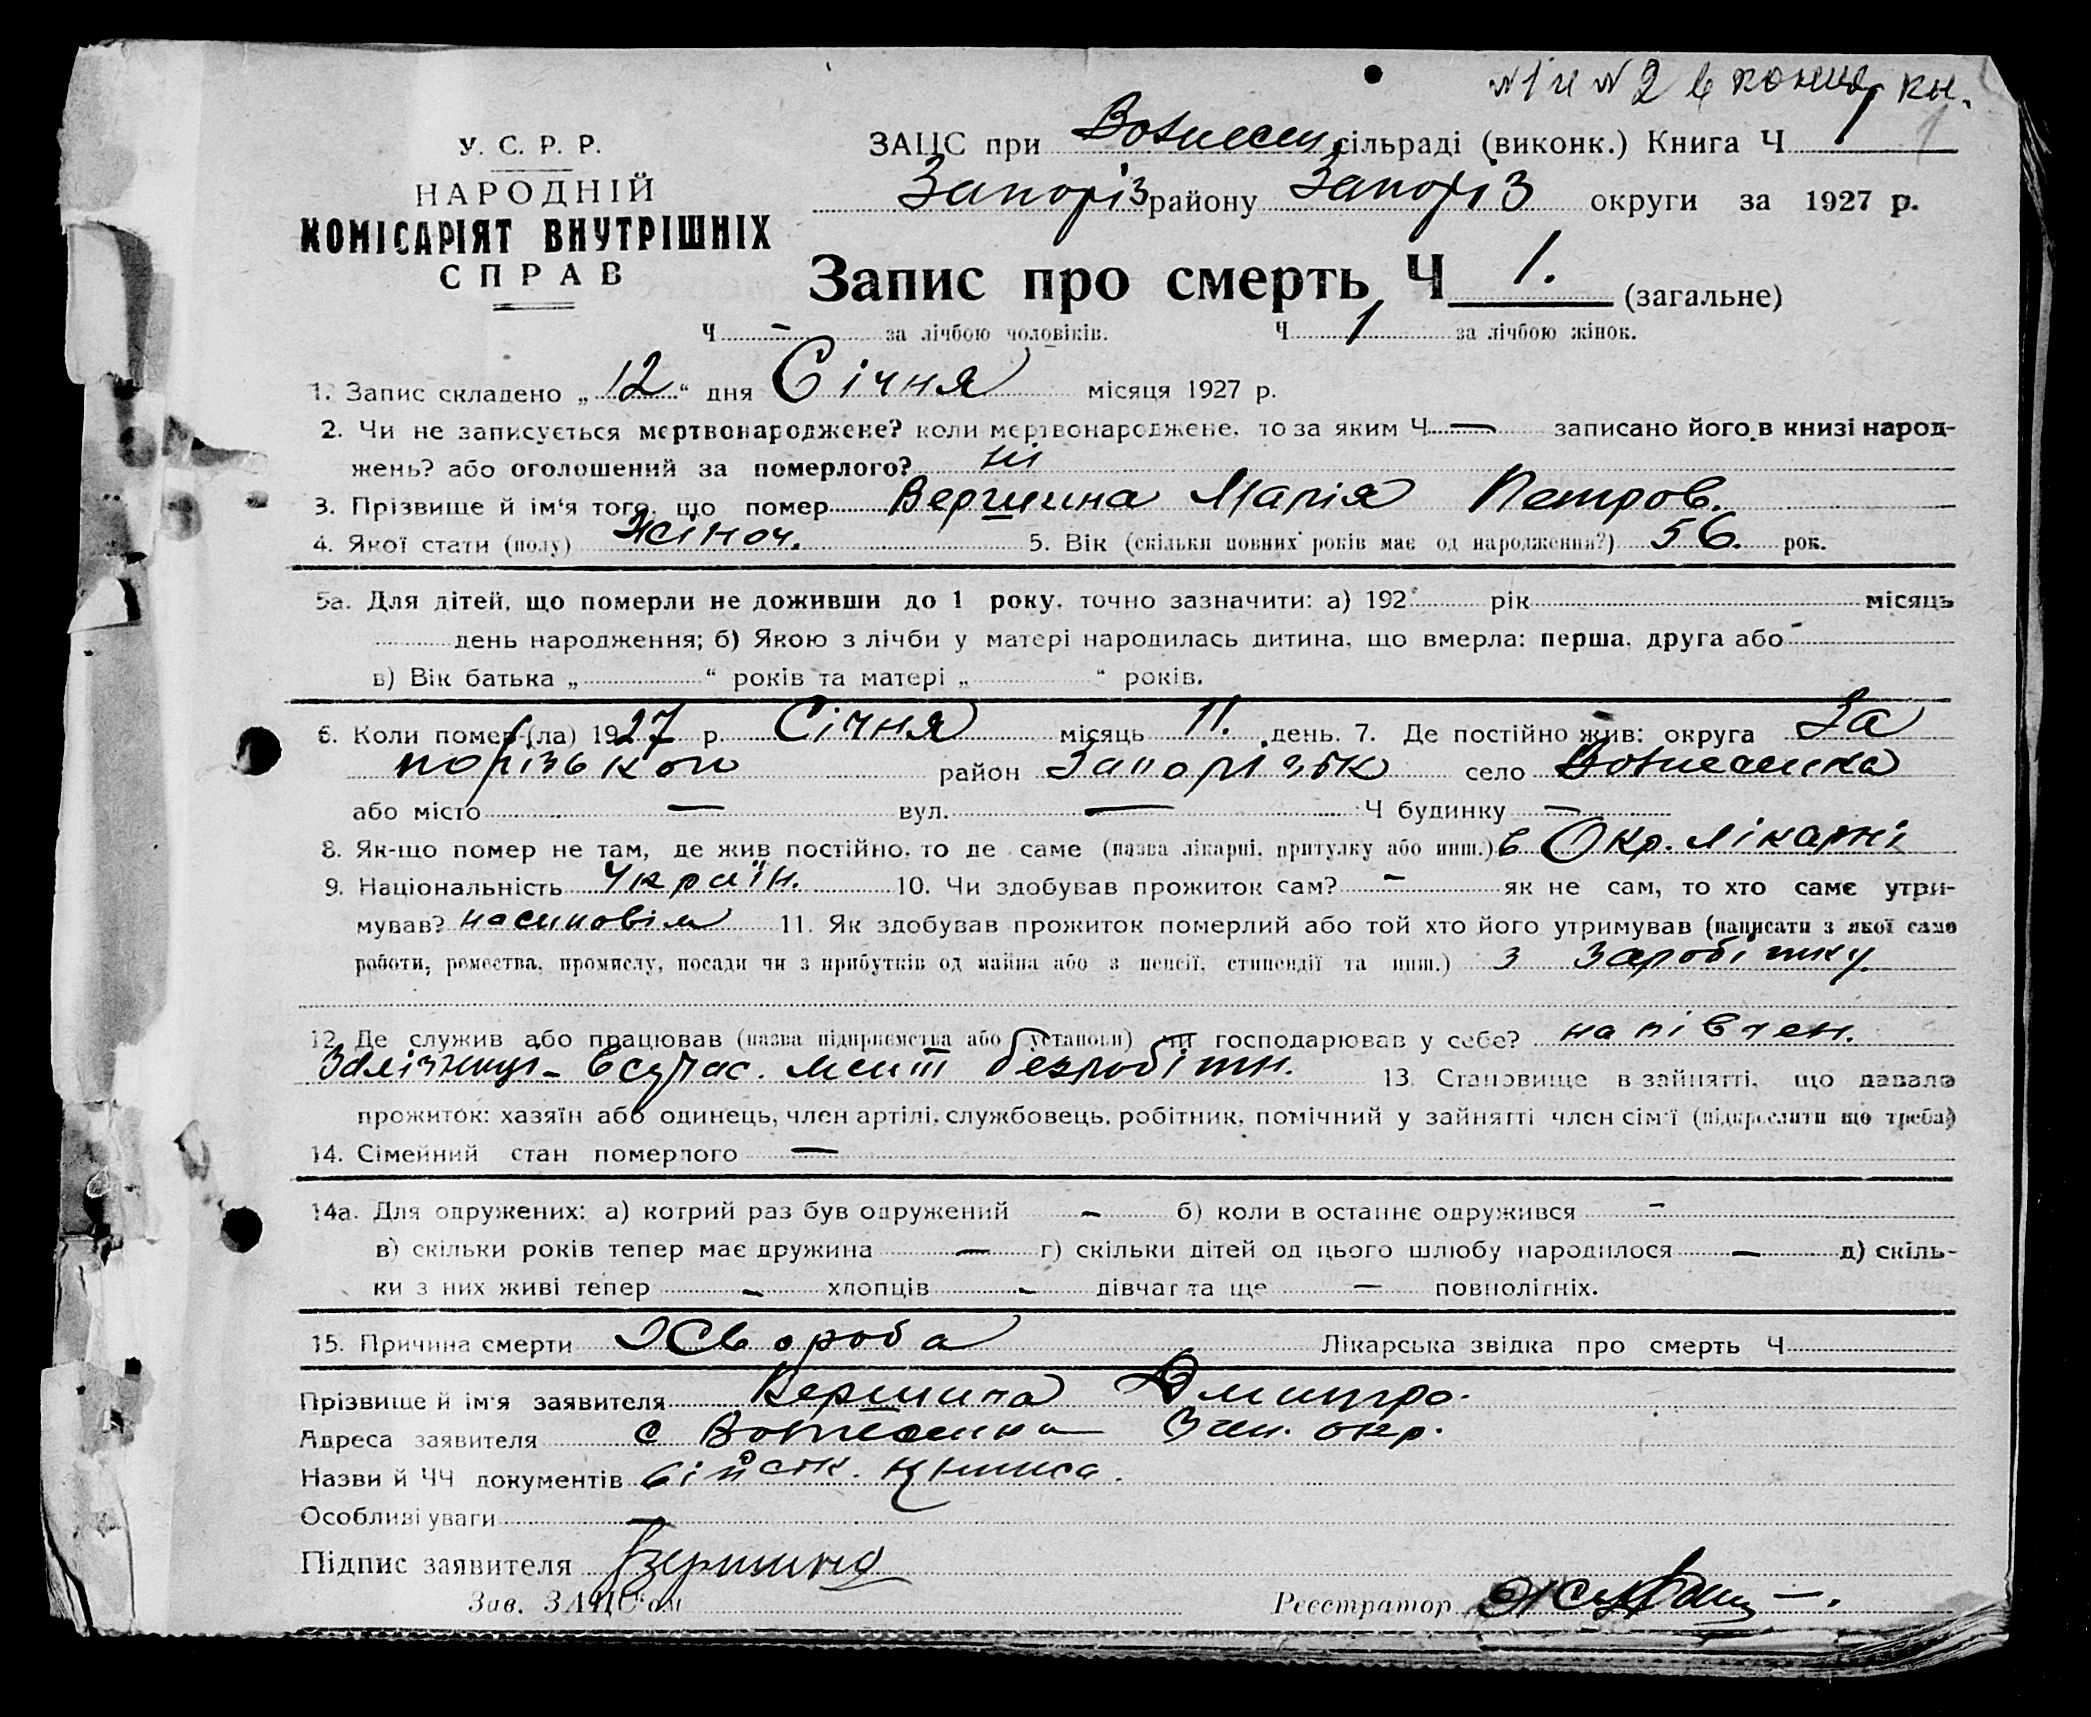 №1 и №2 в конце кн.
У. С. Р. Р.
НАРОДНІЙ
КОМІСАРІЯТ ВНУТРІШНІХ
СПРАВ
ЗАЦС при Вознесен сільраді (виконк.) Книга Ч 1
Запоріз району Запоріз округи за 1927 р.
Запис про смерть Ч 1. (загальне)
Ч - за лічбою чоловіків. Ч 1 за лічбою жінок.
1. Запис складено „12“ дня Січня місяця 1927 р.
2. Чи не записується мертвонароджене? коли мертвонароджене, то за яким Ч — записано його в книзі народ-
жень? або оголошений за померлого? ні
3. Прізвище й ім'я того, що помер Вершина Марія Петров.
4. Якої стати (полу) Жіноч. 5. Вік (скільки повних років має од народження?) 56. рок.
5а. Для дітей, що померли не доживши до 1 року, точно зазначити: а) 192 рік місяць
день народження; б) Якою з лічби у матері народилась дитина, що вмерла: перша, друга або -
в) Вік батька „ “ років та матері „ “ років.
6. Коли помер (ла) 1927 р. Січня місяць 11. день. 7. Де постійно жив: округа За
порізькои район Запорізьк село Вознесенка
або місто — вул. — Ч будинку —
8. Як-що помер не там, де жив постійно, то де саме (назва лікарні, притулку або инш.) в Окр. лікарні
9. Національність Україн. 10. Чи здобував прожиток сам? - як не сам, то хто саме утри-
мував? 11. Як здобував прожиток померлий або той хто його утримував (написати з якої само
роботи, ремества, промислу, посади чи з прибутків од майна або з пенсії, стипендії та инш.) з заробітку
12. Де служив або працював (назва підприємства або установи) чи господарював у себе? на півден.
залізниці - в сучас. мент безробітн. 13. Становище в зайнятті, що давало
прожиток: хазяїн або одинець, член артілі, службовець, робітник, помічний у зайнятті член сім'ї (підкреслити що треба)
14. Сімейний стан померлого —
14а. Для одружених: а) котрий раз був одружений - б) коли в останнє одружився -
в) скільки років тепер має дружина — г) скільки дітей од цього шлюбу народилося — д) скіль-
ки з них живі тепер - хлопців - дівчат та ще — повнолітніх.
15. Причина смерти Хвороба Лікарська звідка про смерть Ч
Прізвище й ім'я заявителя Вершина Дмитро.
Адреса заявителя с Вознесенка Зап. окр.
Назви й ЧЧ документів військ. книжка.
Особливі уваги —
Підпис заявителя Вершина
Зав. ЗАЦС'ом Реєстратор